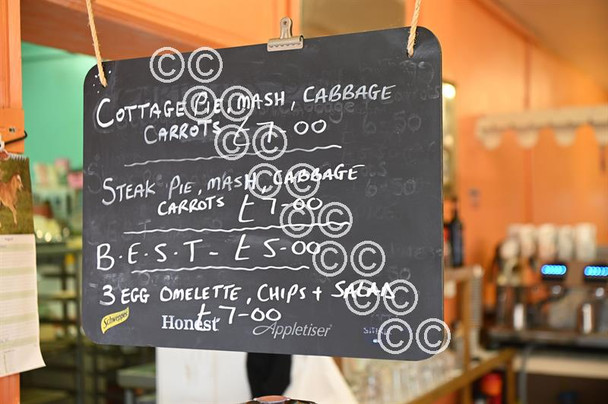 COTTAGE PIE, MASH, CABBAGE
CARROTS £7-00
STEAK PIE, MASH, CABBAGE
CARROTS £7-00
B·E·S·T- £5-00
3 EGG OMELETTE, CHIPS + SALAD
£7-00
Schweppes Honest Appletiser